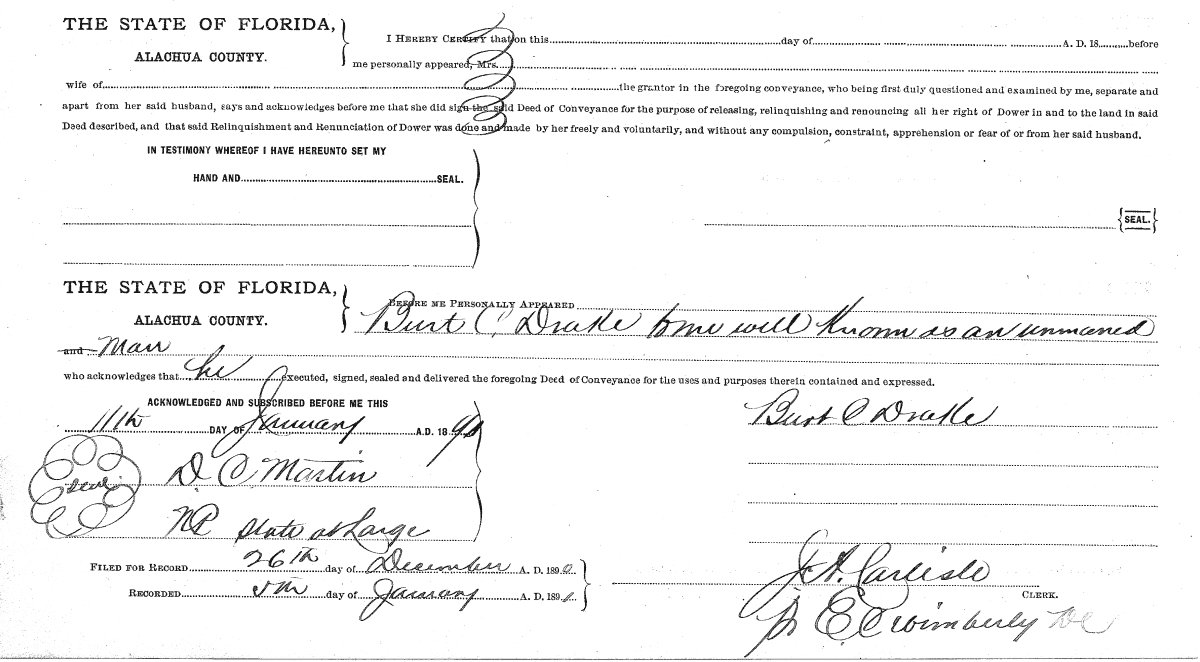 THE STATE OF FLORIDA,
ALACHUA COUNTY.
I HEREBY CERTIFY that on this day of A. D. 18 before
me personally appeared, Mrs.
wife of the grantor in the foregoing conveyance, who being first duly questioned and examined by me, separate and
apart from her said husband, says and acknowledges before me that she did sign the said Deed of Conveyance for the purpose of releasing, relinquishing and renouncing all her right of Dower in and to the land in said
Deed described, and that said Relinquishment and Renunciation of Dower was done and made by her freely and voluntarily, and without any compulsion, constraint, apprehension or fear of or from her said husband.
IN TESTIMONY WHEREOF I HAVE HEREUNTO SET MY
HAND AND SEAL.
SEAL.
THE STATE OF FLORIDA,
ALACHUA COUNTY.
BEFORE ME PERSONALLY APPEARED
Burt C. Drake to me well known as an unmarried
and Man
who acknowledges that he executed, signed, sealed and delivered the foregoing Deed of Conveyance for the uses and purposes therein contained and expressed.
ACKNOWLEDGED AND SUBSCRIBED BEFORE ME THIS
11th DAY OF January A.D. 1890
Burt C Drake
seal
D. C. Martin
NP State at Large
FILED FOR RECORD 26th day of December A. D. 1890
RECORDED 5th day of January A. D. 1891
J. A. Carlisle
CLERK.
pr E C Wimberly DC